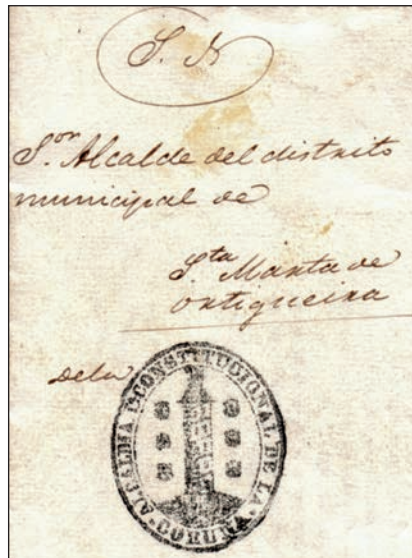 S. N
S.or Alcalde del distrito
municipal de
Sta Marta de
Ortigueira
De la
ALCALDIA CONSTITUCIONAL DE LA
CORUÑA